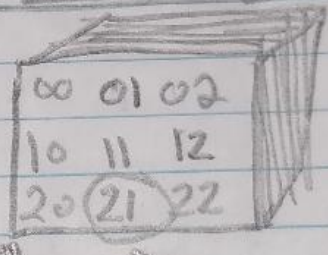 00 01 02
10 11 12
20 21 22